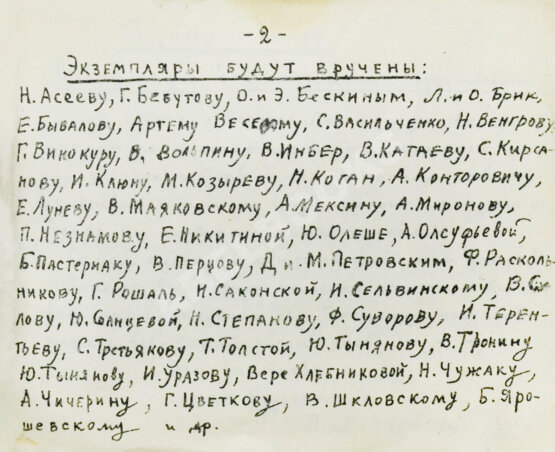 -2-
Экземпляры будут вручены:
Н. Асееву, Г. Бебутову, О. и Э. Бескиным, Л. и О. Брик,
Е. Бывалову, Артему Веселому, С. Васильченко, Н. Венгрову
Г. Винокуру, В. Вольпину, В. Инбер, В. Катаеву, С. Кирса-
нову, И. Клюну, М. Козыреву, Н. Коган, А. Конторовичу,
Е. Луневу, В. Маяковскому, А. Мексину, А. Миронову,
П. Незнамову, Е. Никитиной, Ю. Олеше, А. Олсуфьевой,
Б. Пастернаку, В. Перцову, Д. и М. Петровским, Ф. Расколь-
никову, Г. Рошаль, Н. Саконской, И. Сельвинскому, В.
лову, Ю. Солнцевой, Н. Степанову, Ф. Суворову, И. Терен-
тьеву, С. Третьякову, Т. Толстой, Ю. Тынянову, В. Тронину
Ю. Тынянову, И. Уразову, Вере Хлебниковой, Н. Чужаку,
А. Чичерину, Г. Цветкову, В. Шкловскому, Б. Яро-
шевскому и др.